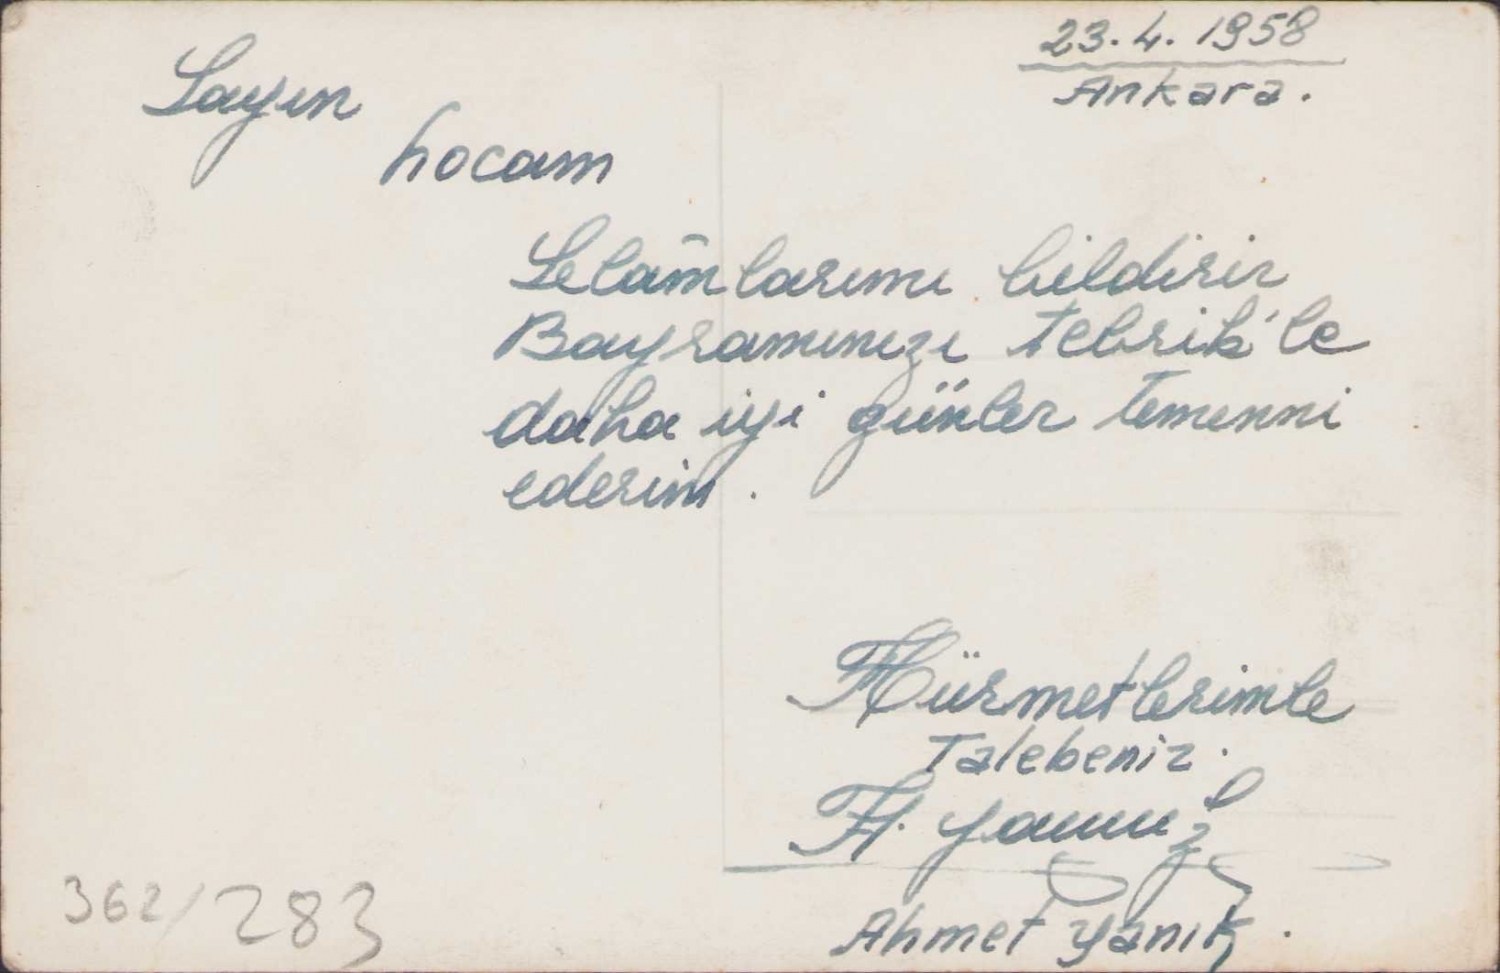 23.4.1958
Ankara.
Sayın
hocam
Selâmlarımı bildirir
Bayramınızı tebrik'le
daha iyi günler temenni
ederim.
Hürmetlerimle
Talebeniz.
Ahmet Yanık.
362/283